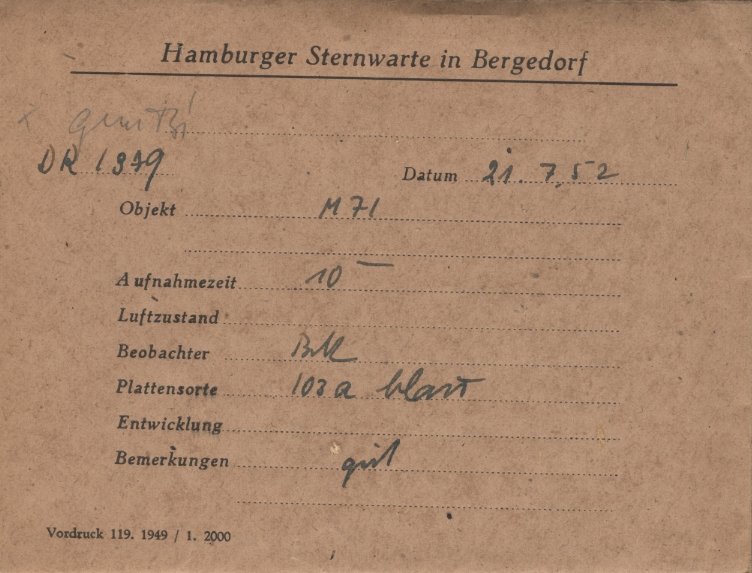 Hamburger Sternwarte in Bergedorf
DR 1379 Datum 21. 7. 52
Objekt M 71
Aufnahmezeit 10
Luftzustand
Beobachter
Plattensorte 103 a blau
Entwicklung
Bemerkungen gut
Vordruck 119. 1949 / 1. 2000